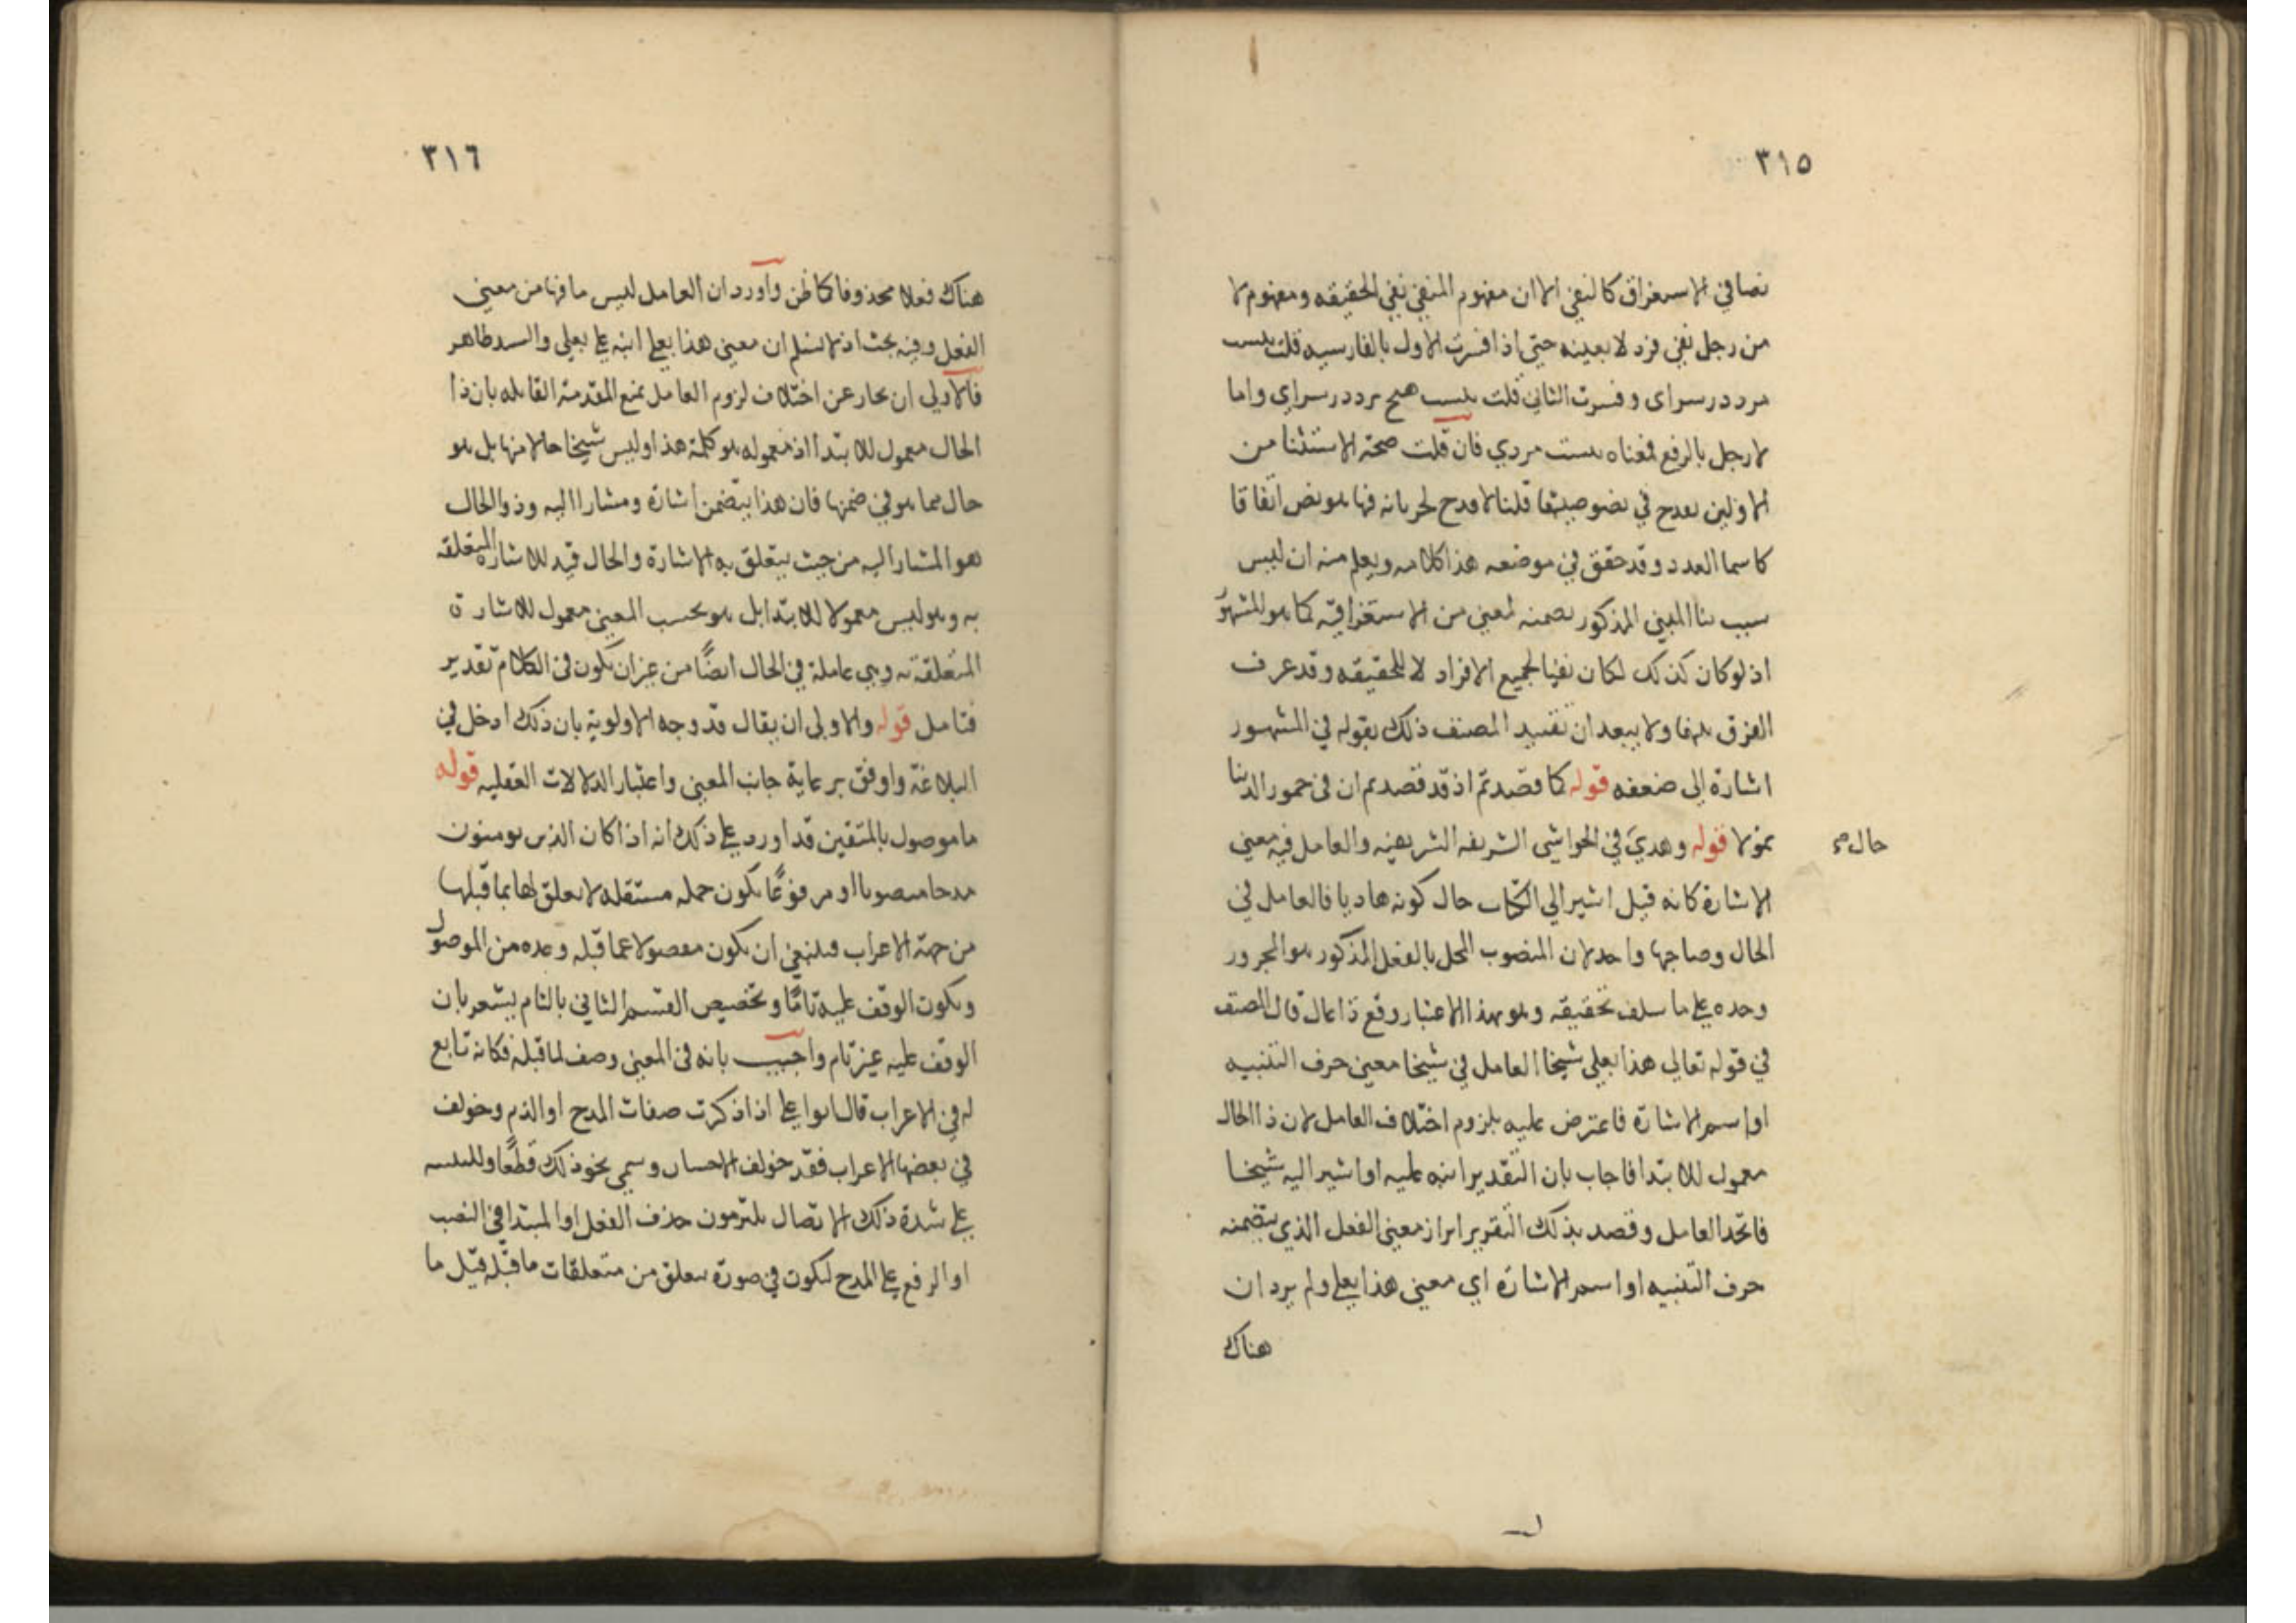 ٣١٥
نصا في الاستغراق كالنفي الا ان مفهوم المنفي نفي الحقيقه ومفهوم لا
من رجل نفي فرد لا بعينه حتي اذا فسرت الاول بالفارسيه قلت نيست
مرد در سراى وفسرت الثاني قلت نيست هيچ مرد در سراي واما
لا رجل بالرفع فمعناه نيست مردي فان قلت صحة الاستثنا من
الاولين يقدح في نصوصيتها قلنا لا يقدح لجريانه فيما هو نص اتفاقا
كاسما العدد وقد حقق في موضعه هذا كلامه ويعلم منه ان ليس
سبب بنا المبني المذكور تضمنه لمعني من الاستغراقيه كما هو المشهور
اذ لو كان كذلك لكان نفيا لجميع الافراد لا للحقيقه وقد عرف
الفرق بينهما ولا يبعد ان تقييد المصنف ذلك بقوله في المشهور
اشارة الى ضعفه قوله كما قصد ثم اذ قد قصد ثم ان في خمور الدنيا
غولا قوله وهدي في الحواشي الشريفه الشريفيه والعامل فيه معني
حال صح
الاشارة كانه قيل اشير الي الكتاب حال كونه هاديا فالعامل في
الحال وصاحبها واحد لان المنصوب المحل بالفعل المذكور هو المجرور
وحده على ما سلف تحقيقه وهو بهذا الاعتبار وقع ذا حال قال المصنف
في قوله تعالى هذا بعلي شيخا العامل في شيخا معني حرف التنبيه
او اسم الاشارة فاعترض عليه بلزوم اختلاف العامل لان ذا الحال
معمول للابتدا فاجاب بان التقدير انبه عليه او اشير اليه شيخا
فاتحد العامل وقصد بذلك التقرير ابراز معني الفعل الذي يتضمنه
حرف التنبيه او اسم الاشارة اي معني هذا بعلي ولم يرد ان
هناك
٣١٦
هناك فعلا محذوفا كما ظن واورد ان العامل ليس ما فيها من معني
الفعل وفيه بحث اذ لا نسلم ان معني هذا بعلي انبه على بعلي والسند ظاهر
فالاولى ان يجاب عن اختلاف لزوم العامل بمنع المقدمة القائله بان ذا
الحال معمول للابتدا اذ معموله هو كلمة هذا وليس شيخا حالا منها بل هو
حال مما هو في ضمنها فان هذا يتضمن اشارة ومشارا اليه وذو الحال
هو المشار اليه من حيث يتعلق به الاشارة والحال قيد للاشارة المتعلقه
به وهو ليس معمولا للابتدا بل هو بحسب المعني معمول للاشارة
المتعلقة به وهي عاملة في الحال ايضًا من غير ان يكون في الكلام تقدير
فتامل قوله والاولى ان يقال قد وجه الاولوية بان ذلك ادخل في
البلاغة واوفق برعاية جانب المعني واعتبار الدلالات العقليه قوله
ما موصول بالمتقين قد اورد على ذلك انه اذا كان الذين يومنون
مدحا منصوبا او مرفوعًا يكون جمله مستقله لا تعلق لها بما قبلها
من جهة الاعراب فينبغي ان يكون مفصولا عما قبله وعده من الموصول
ويكون الوقف عليه تامًا وتخصيص القسم الثاني بالتام يشعر بان
الوقف عليه غير تام واجيب بانه في المعني وصف لما قبله فكانه تابع
له في الاعراب قال ابو علي اذا ذكرت صفات المدح او الذم وخولف
في بعضها الاعراب فقد خولف الافتنان وسمي نحو ذلك قطعًا وللتنبيه
على شدة ذلك الاتصال يلتزمون حذف الفعل او المبتدا في النصب
او الرفع على المدح ليكون في صورة متعلق من متعلقات ما قبله قيل ما